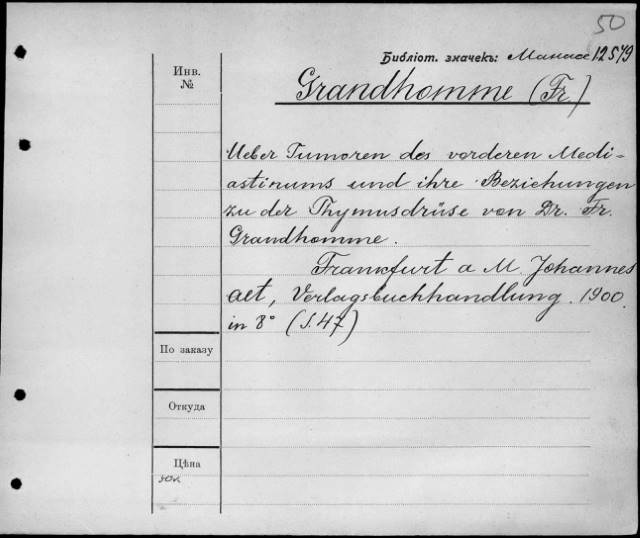 50
Библіот. значекъ: 12549
Инв.
№
Grandhomme (Fr.)
Ueber Tumoren des vorderen Medi-
astinums und ihre Beziehungen
zu der Thymusdrüse von Dr. Fr.
Grandhomme.
Frankfurt a M. Johannes
Alt, Verlagsbuchhandlung. 1900.
in 8° (S. 47)
По заказу
Откуда
Цѣна